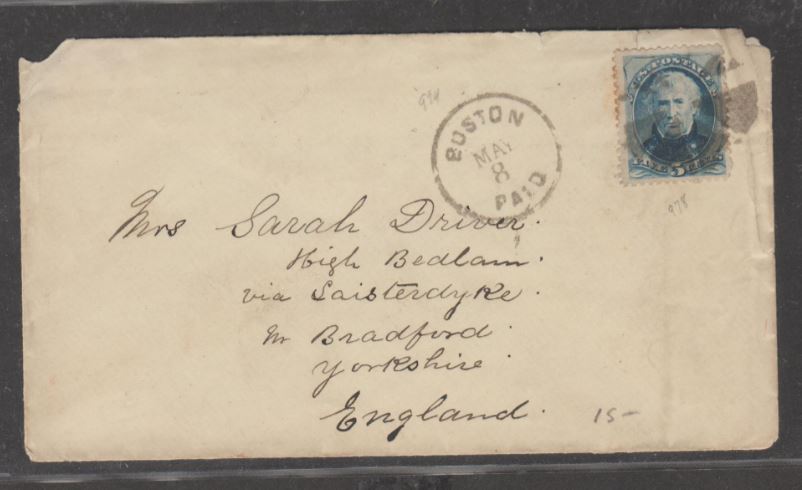 U.S. POSTAGE
5
974
BOSTON
MAY
8
PAID
978
Mrs Sarah Driver.
High Bedlam.
via Laisterdyke.
nr Bradford.
Yorkshire.
England.
15-